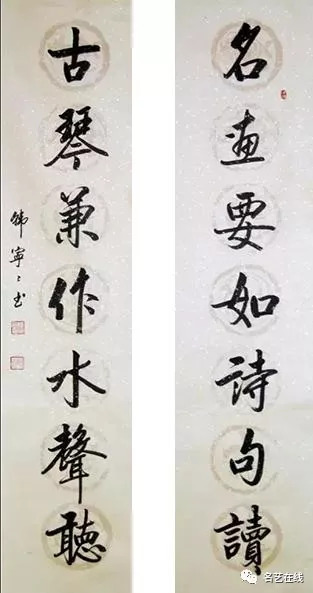 名畫要如詩句讀
古琴兼作水聲聽
韩寧寧书
名艺在线